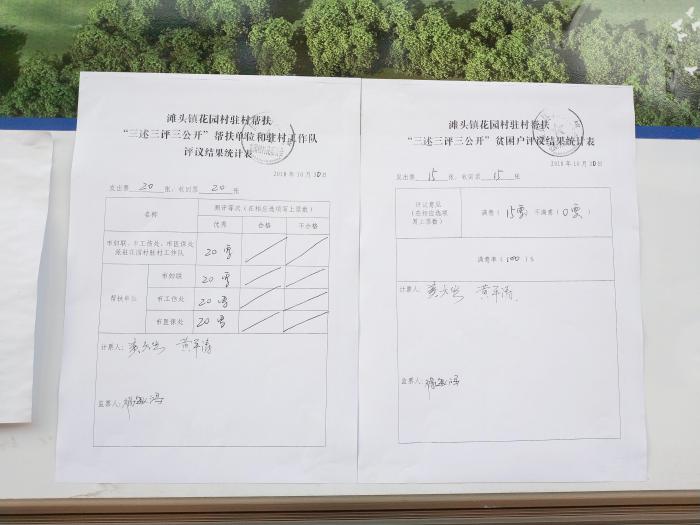 滩头镇花园村驻村帮扶
“三述三评三公开”帮扶单位和驻村工作队
评议结果统计表
2018年10月30日
发出票 20 张；收回票 20 张
名称
测评等次（在相应选项写上票数）
优秀 合格 不合格
市妇联、市工伤处、市医保处
派驻花园村驻村工作队
20票
帮扶单位
市妇联 20票
市工伤处 20票
市医保处 20票
计票人：
监票人：
滩头镇花园村驻村帮扶
“三述三评三公开”贫困户评议结果统计表
2018年10月30日
发出票 15 张；收回票 15 张
评议意见
（在相应选项
写上票数）
满意（15票） 不满意（0票）
满意率（100）%
计票人：
监票人：